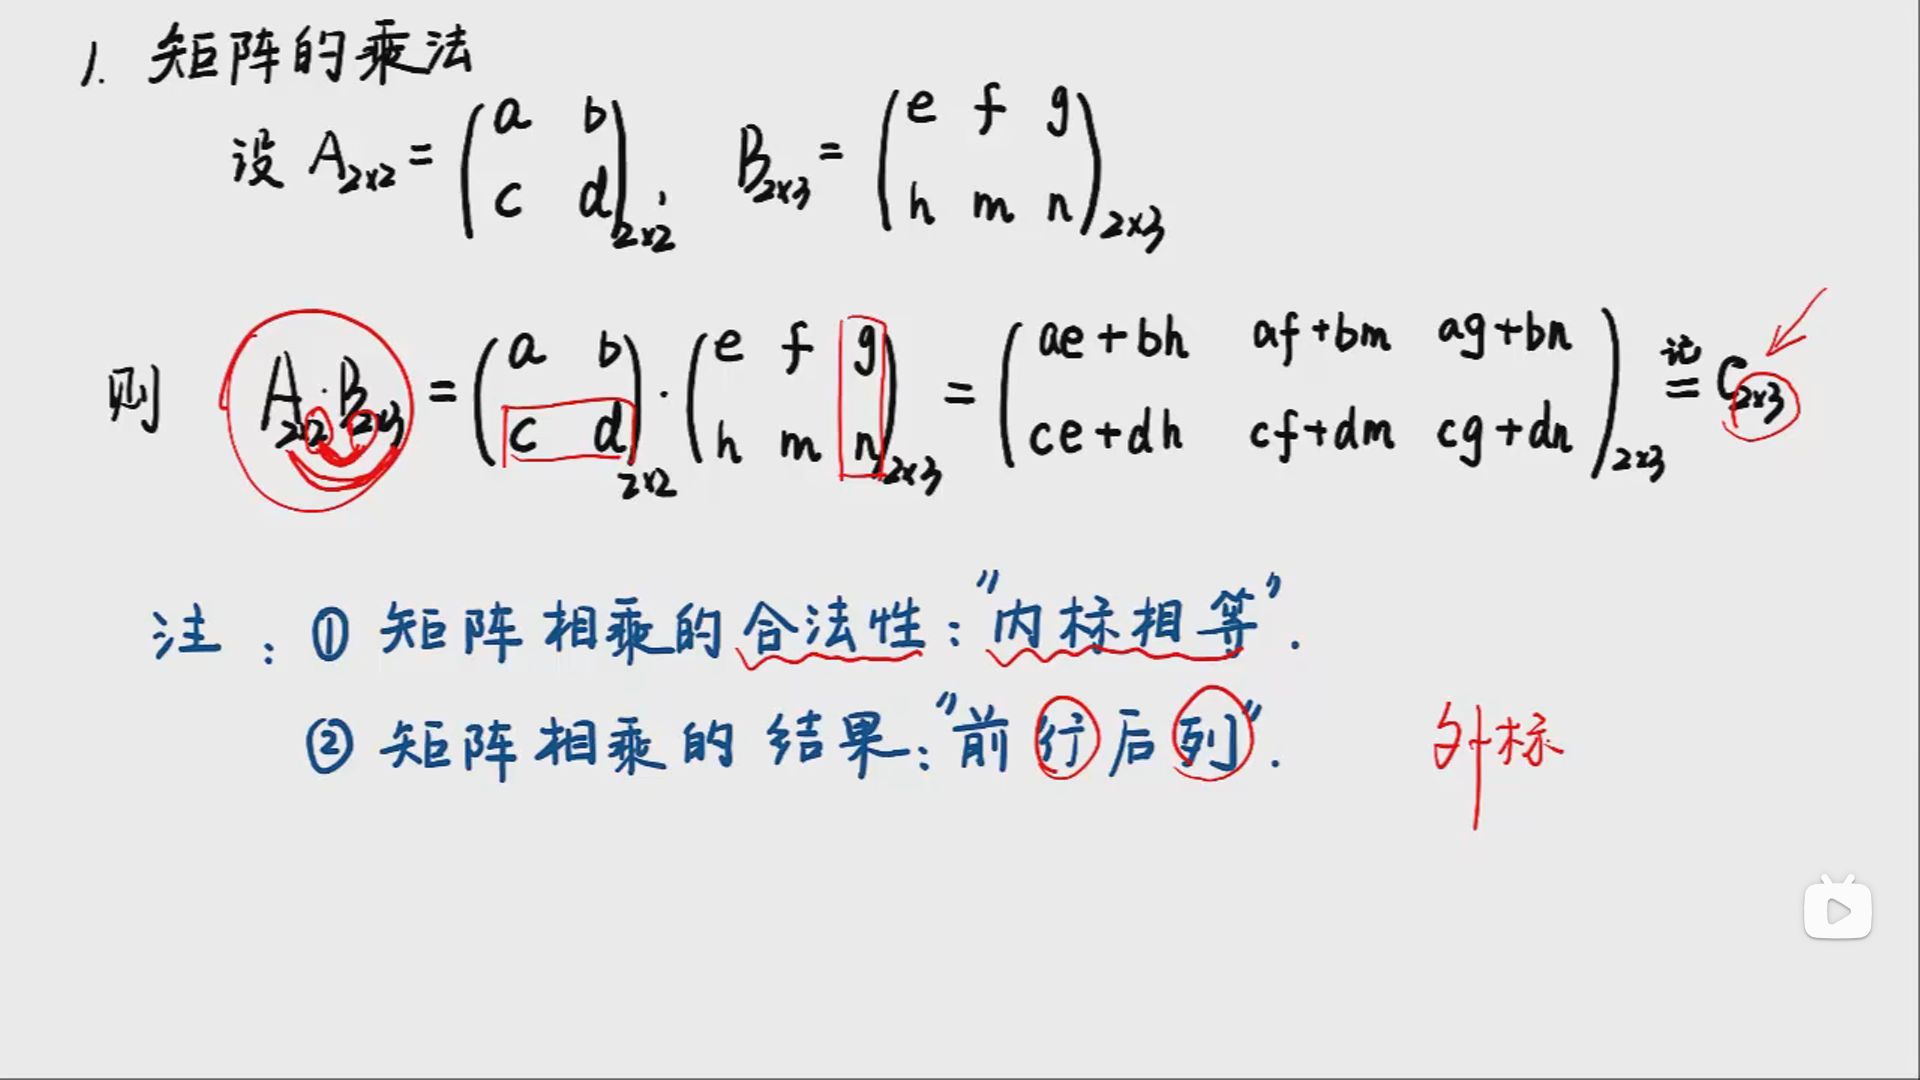 1. 矩阵的乘法
设 A₂ₓ₂ = (a b; c d)₂ₓ₂, B₂ₓ₃ = (e f g; h m n)₂ₓ₃
则 A₂ₓ₂·B₂ₓ₃ = (a b; c d)₂ₓ₂ · (e f g; h m n)₂ₓ₃ = (ae+bh af+bm ag+bn; ce+dh cf+dm cg+dn)₂ₓ₃ 记= C₂ₓ₃
注：① 矩阵相乘的合法性："内标相等".
② 矩阵相乘的结果："前行后列". 外标